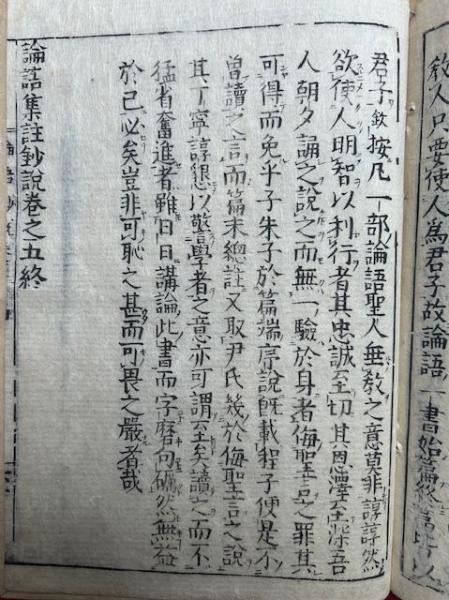 教人只要使人為君子故論語一書始篇終篇皆以
君子敘按凡一部論語聖人垂教之意莫非諄諄然
欲使人明智以利行者其忠誠至切其恩澤至深吾
人朝夕誦之說之而無一驗於身者侮聖言之罪其
可得而免乎子朱子於篇端序說既載程子便是不
曾讀之言而篇末總註又取尹氏幾於侮聖言之說
其丁寧諄懇以警學者之意亦可謂至矣讀之而不
猛省奮進者雖日日講論此書而字磨句確然無益
於己必矣豈非可恥之甚而可畏之嚴者哉
論語集註鈔說卷之五終